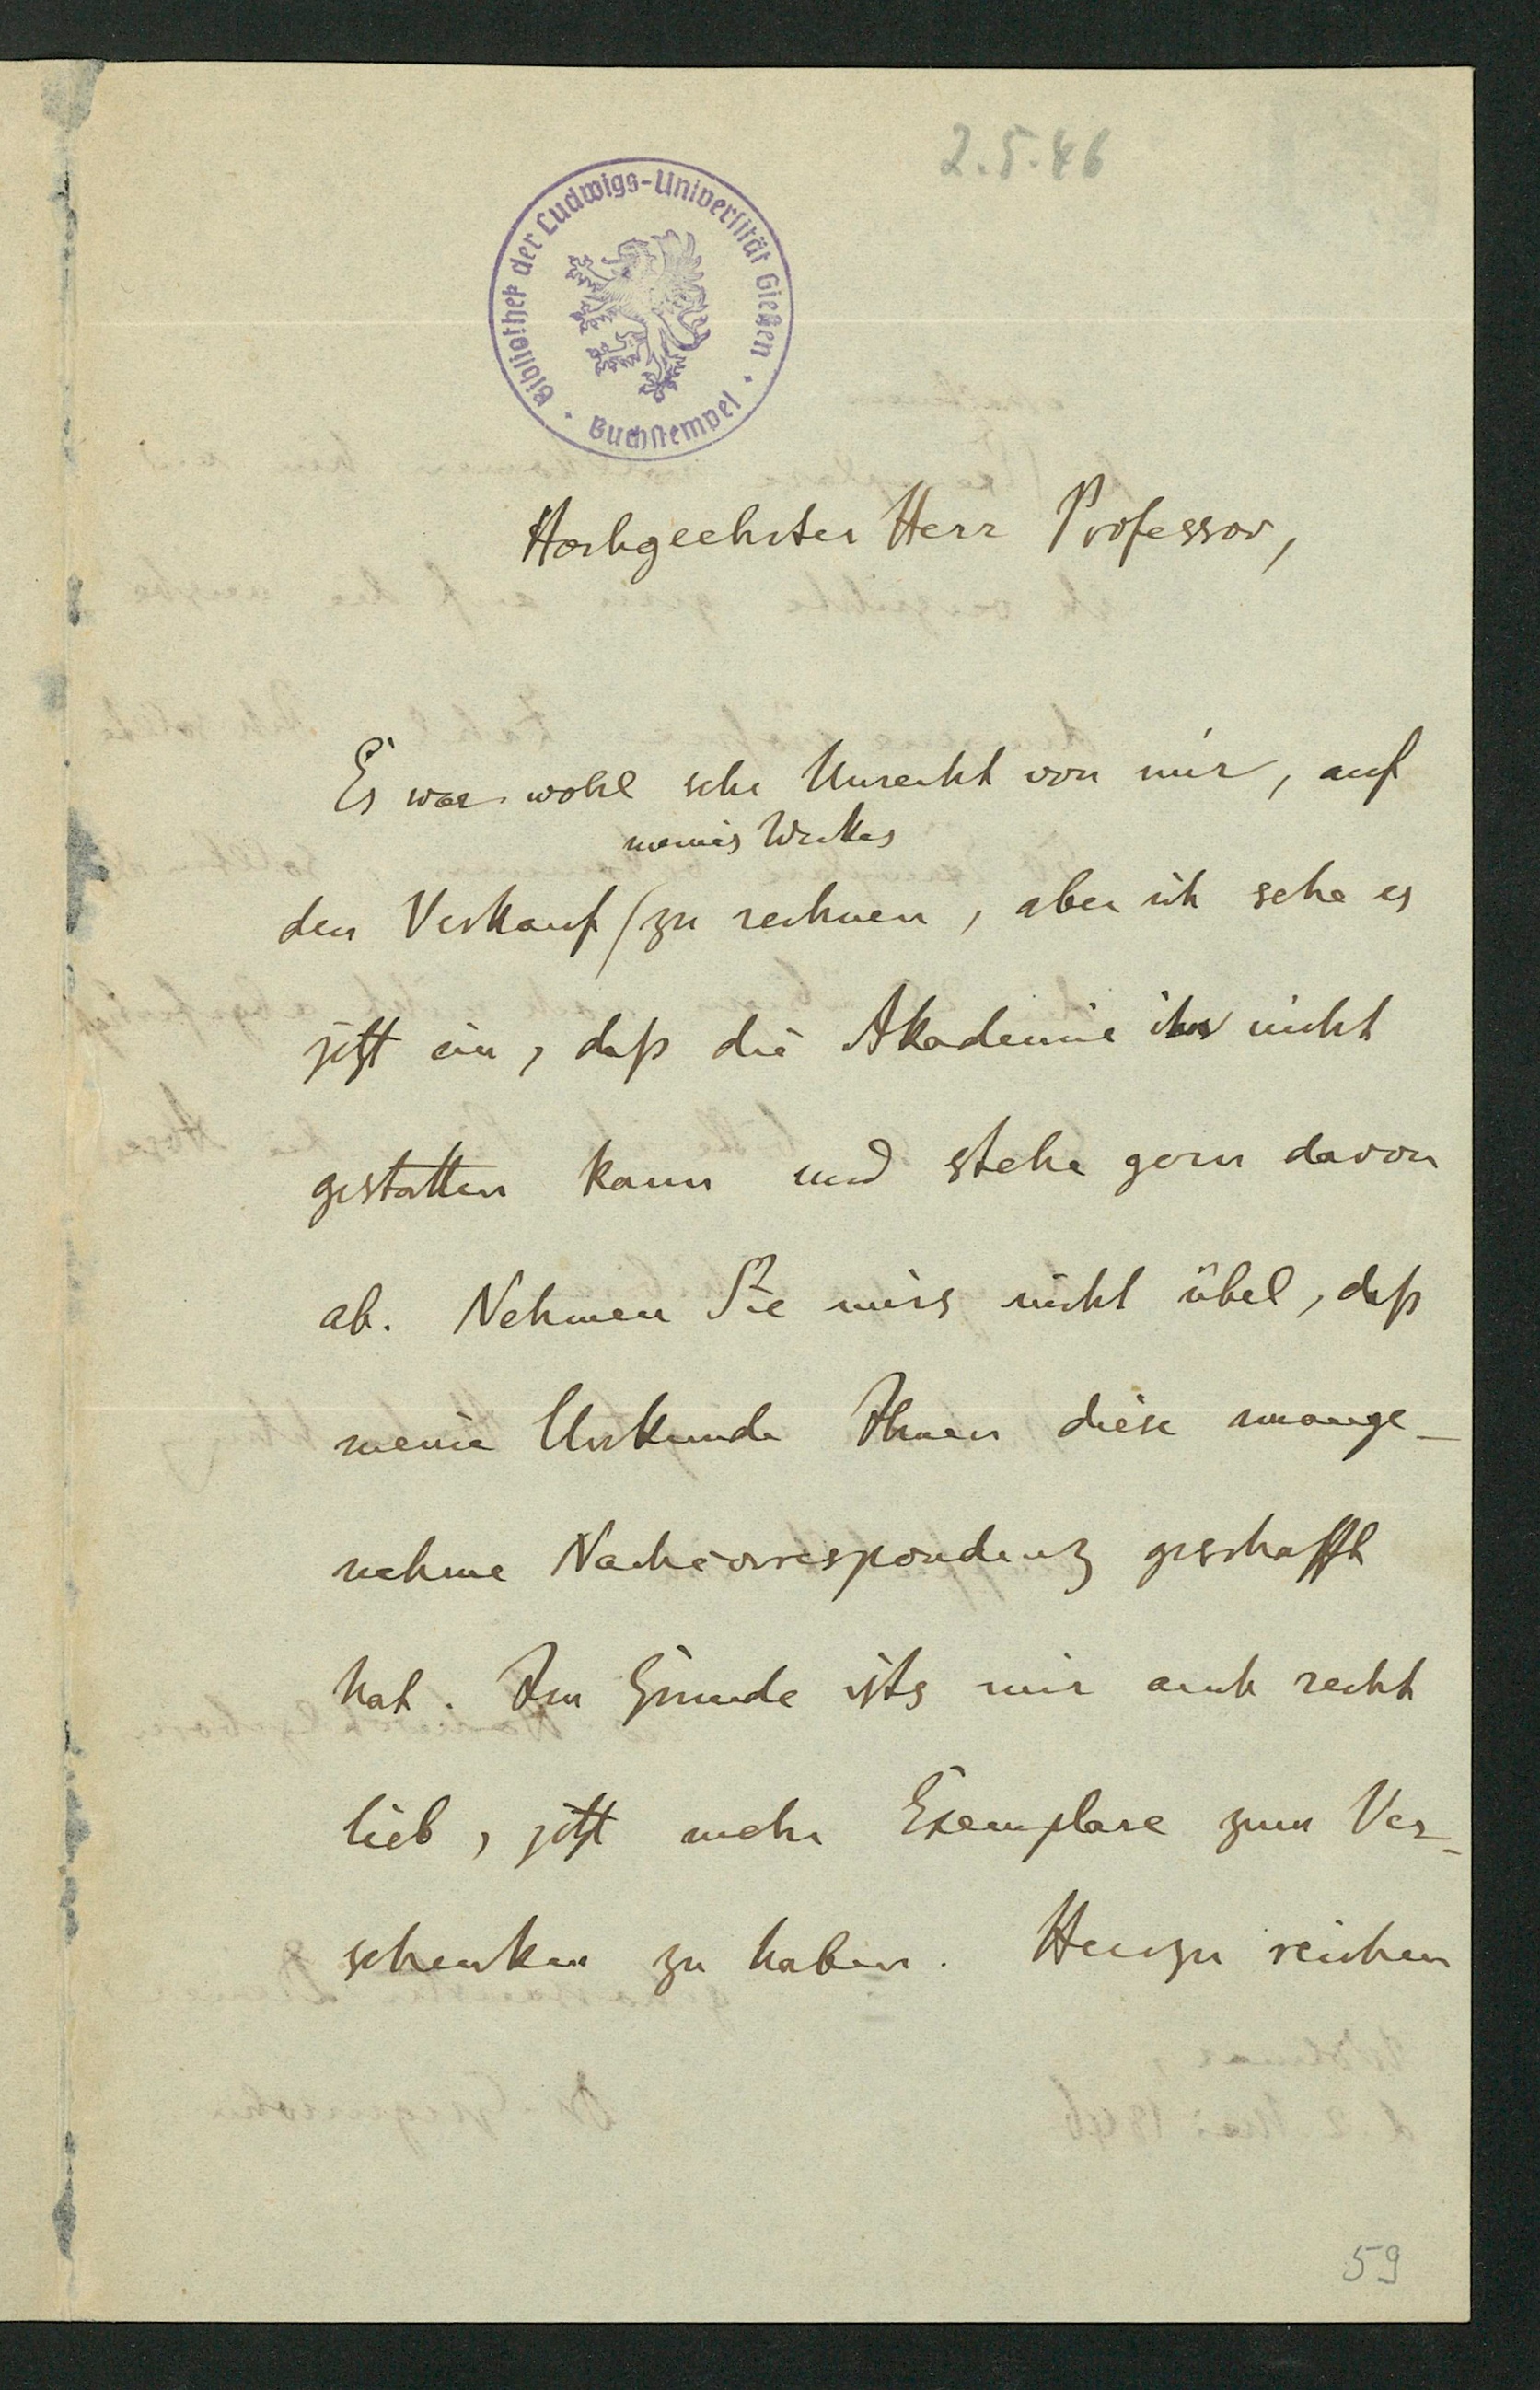 2.5.46
Bibliothek der Ludwigs-Universität Gießen · Buchstempel ·
Hochgeehrter Herr Professor,
Es war wohl sehr Unrecht von mir, auf
meines Werkes
den Verkauf / zu rechnen, aber ich sehe es
jetzt ein, daß die Akademie ihn nicht
gestatten kann und stehe gern davon
ab. Nehmen Sie mirs nicht übel, daß
meine Unkunde Ihnen diese unange-
nehme Nachcorrespondenz geschafft
hat. Im Grunde ists mir auch recht
lieb, jetzt mehr Exemplare zum Ver-
schenken zu haben. Hierzu reichen
59